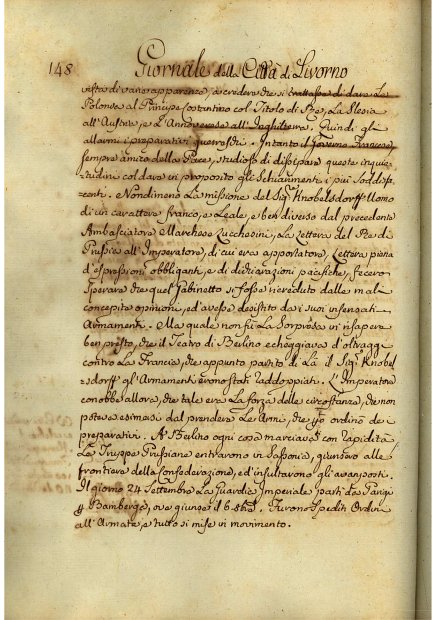 148 Giornale della Città di Livorno
vista di varie apparenze, a credere che si trattasse di dare la
Polonia al Principe Costantino col Titolo di Re, La Slesia
all'Austria, e l'Annoverese all'Inghilterra. Quindi gli
allarmi i preparativi guerreschi. Intanto il Governo Francese
sempre amico della Pace, studiossi di dissipare queste inquie-
tudini col dare in proposito gli Schiarimenti i più Soddisfa-
=centi. Nondimeno La missione del Sig.r Knobelsdorff Uomo
di un carattere franco, e Leale, e ben diverso dal precedente
Ambasciatore Marchese Lucchesini, La Lettera del Re di
Prussia all'Imperatore, di cui era apportatore, Lettera piena
d'espressioni obbliganti, e di dichiarazioni pacifiche, fecero
Sperare che quel Gabinetto si fosse ricreduto dalle mal
concepite opinioni, ed avesse desistito dai suoi insensati
Armamenti. Ma quale non fù La Sorpresa in risapere
ben presto, che il Teatro di Berlino echeggiava d'oltraggi
contro La Francia, che appunto partito di Là il Sig.r Knobel
=sdorff gl'Armamenti erono stati raddoppiati. L'Imperatore
conobbe allora, che tale era La forza delle circostanze, che non
poteva esimersi dal prendere Le Armi, che ordinò de
preparativi. A Berlino ogni cosa marciava con rapidità
La Truppe Prussiane entrarono in Sassonia, giunsero alle
frontiera della Confederazione, ed insultarono gli avanposti.
Il giorno 24 Settembre La Guardia Imperiale partì da Parigi
p Bamberga, ove giunse il 6 Furono Spediti Ordini
all'Armata, e tutto si mise in movimento.